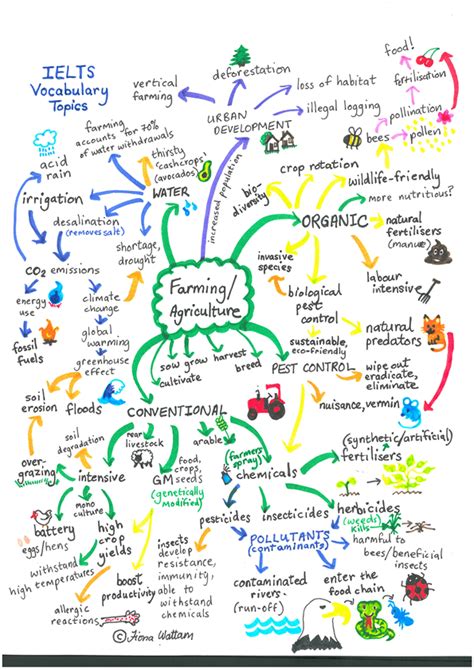 IELTS
Vocabulary
Topics
vertical
farming
deforestation
URBAN
DEVELOPMENT
loss of habitat
illegal logging
food!
fertilisation
pollination
bees
pollen
farming
accounts for 70%
of water withdrawals
thirsty
'cashcrops'
(avocados)
WATER
acid
rain
irrigation
desalination
(removes salt)
shortage,
drought
increased population
bio-
diversity
crop rotation
wildlife-friendly
more nutritious?
ORGANIC
natural
fertilisers
(manure)
labour
intensive
invasive
species
biological
pest
control
natural
predators
sustainable,
eco-friendly
PEST CONTROL
wipe out
eradicate,
eliminate
nuisance, vermin
CO2 emissions
energy
use
fossil
fuels
climate
change
global
warming
greenhouse
effect
Farming/
Agriculture
sow
grow
harvest
cultivate
breed
soil
erosion
floods
CONVENTIONAL
soil
degradation
rear
livestock
arable
food,
crops,
GM seeds
(genetically
modified)
(farmers
spray)
chemicals
(synthetic/artificial)
fertilisers
over-
grazing
intensive
mono
culture
battery
eggs/hens
high
crop
yields
withstand
high temperatures
boost
productivity
allergic
reactions
insects
develop
resistance,
immunity,
able to
withstand
chemicals
pesticides
insecticides
herbicides
(weeds)
kills
POLLUTANTS
(contaminants)
harmful to
bees/beneficial
insects
contaminated
rivers-
(run-off)
enter the
food chain
© Fiona Wattam